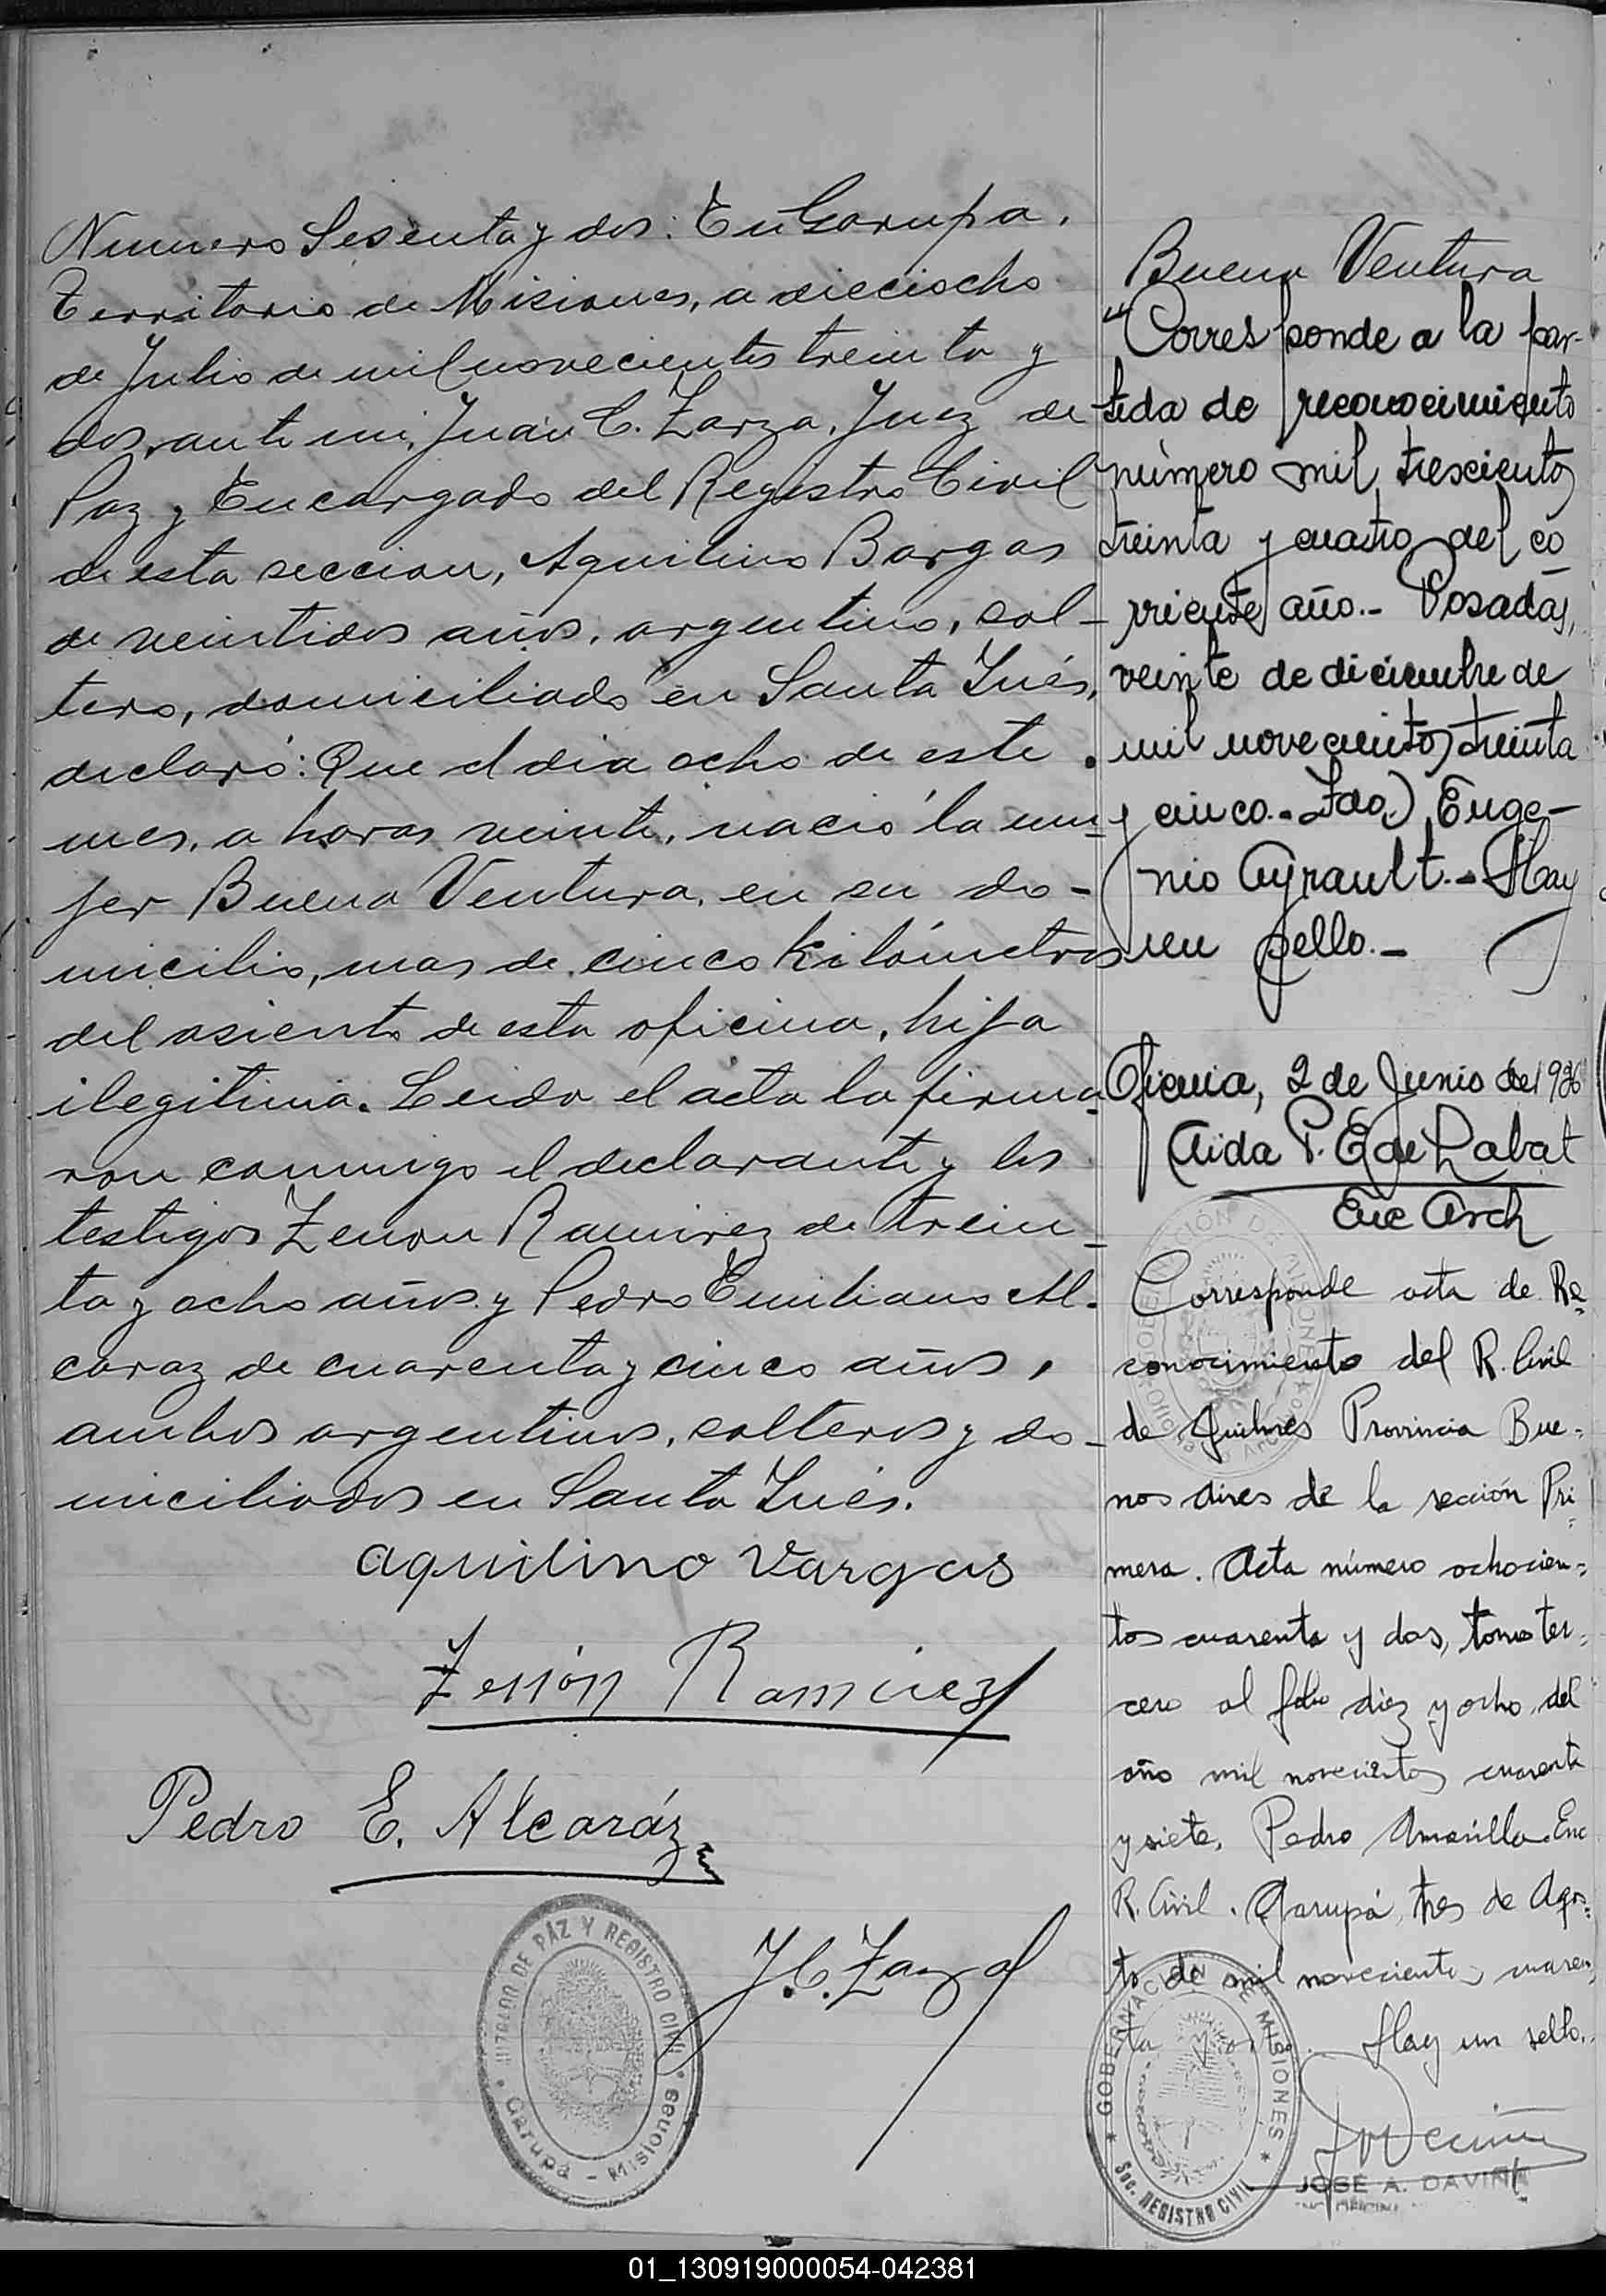 Numero Sesenta y dos: En Garupa,
Territorio de Misiones, a dieciocho
de Julio de mil novecientos treinta y
dos, ante mi, Juan C. Zarza, Juez de
Paz y Encargado del Registro Civil
de esta seccion, Aquilino Bargas
de veintidos años, argentino, sol-
tero, domiciliado en Santa Inés,
declaró: Que el dia ocho de este
mes, a horas veinte, nació la mu-
jer Buena Ventura, en su do-
micilio, mas de cinco kilómetros
del asiento de esta oficina, hija
ilegitima. Leida el acta la firma-
ron conmigo el declarante y los
testigos Zenon Ramirez de trein-
ta y ocho años y Pedro Emiliano Al-
caraz de cuarenta y cinco años,
ambos argentinos, solteros y do-
miciliados en Santa Inés.
Aquilino Vargas
Zenón Ramirez
Pedro E. Alcaráz
J.C. Zarza
JUZGADO DE PAZ Y REGISTRO CIVIL
Garupá - Misiones
Buena Ventura
"Corresponde a la par-
tida de reconocimiento
número mil trescientos
treinta y cuatro del co
rriente año.- Posadas,
veinte de diciembre de
mil novecientos treinta
y cinco.- Fdo.) Euge-
nio Ayrault.- Hay
un sello.-
Oficina, 2 de Junio de 1936
Aida P. E. de Labat
Enc Arch
Corresponde acta de Re-
conocimiento del R. Civil
de Quilmes Provincia Bue-
nos Aires de la sección Pri-
mera. Acta número ochocien-
tos cuarenta y dos, tomo ter-
cero al folio diez y ocho, del
año mil novecientos cuarenta
y siete. Pedro Amarilla. Enc
R. Civil. Garupá, tres de Agos-
to de mil novecientos cuaren-
ta y . Hay un sello.
GOBERNACIÓN DE MISIONES
Sec. REGISTRO CIVIL
JOSÉ A. DAVIÑA
01_130919000054-042381